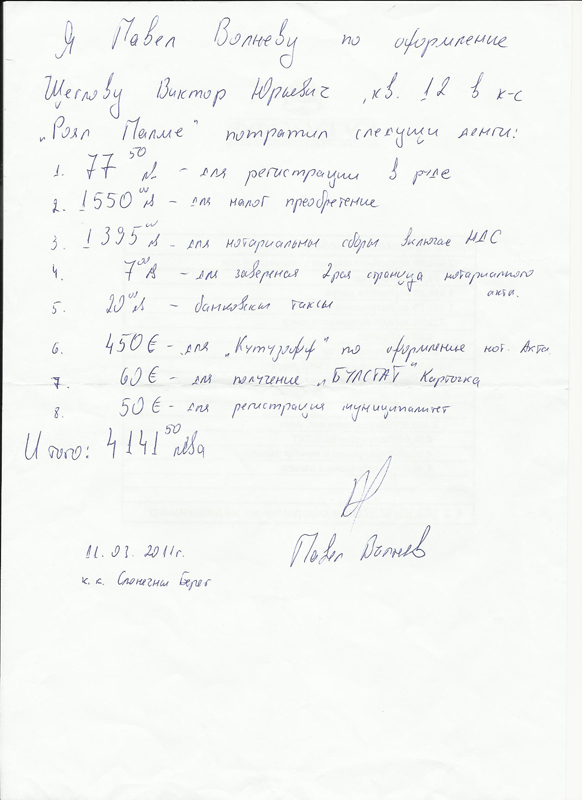 Я Павел Волневу по оформление
Щеглову Виктор Юрьевич, кв. 12 в к-с
„Роял Палме" потратил следущи денги:
1. 77 50 лв - для регистрации в
2. 1550 00 лв - для налог преобретение
3. 1395 00 лв - для нотариальны сборы включае НДС
4. 7 00 лв - для заверения 2рая страница нотариалного
акта.
5. 20 00 лв - банковская таксы
6. 450 € - для „Кутузофф" по оформление нот. Акта.
7. 60 € - для получение „БУЛСТАТ" Карточка
8. 50 € - для регистрация муниципалитет
Итого: 4141 50 лева
11. 03. 2011г. Павел Волнев
к.к. Слонечная Берег